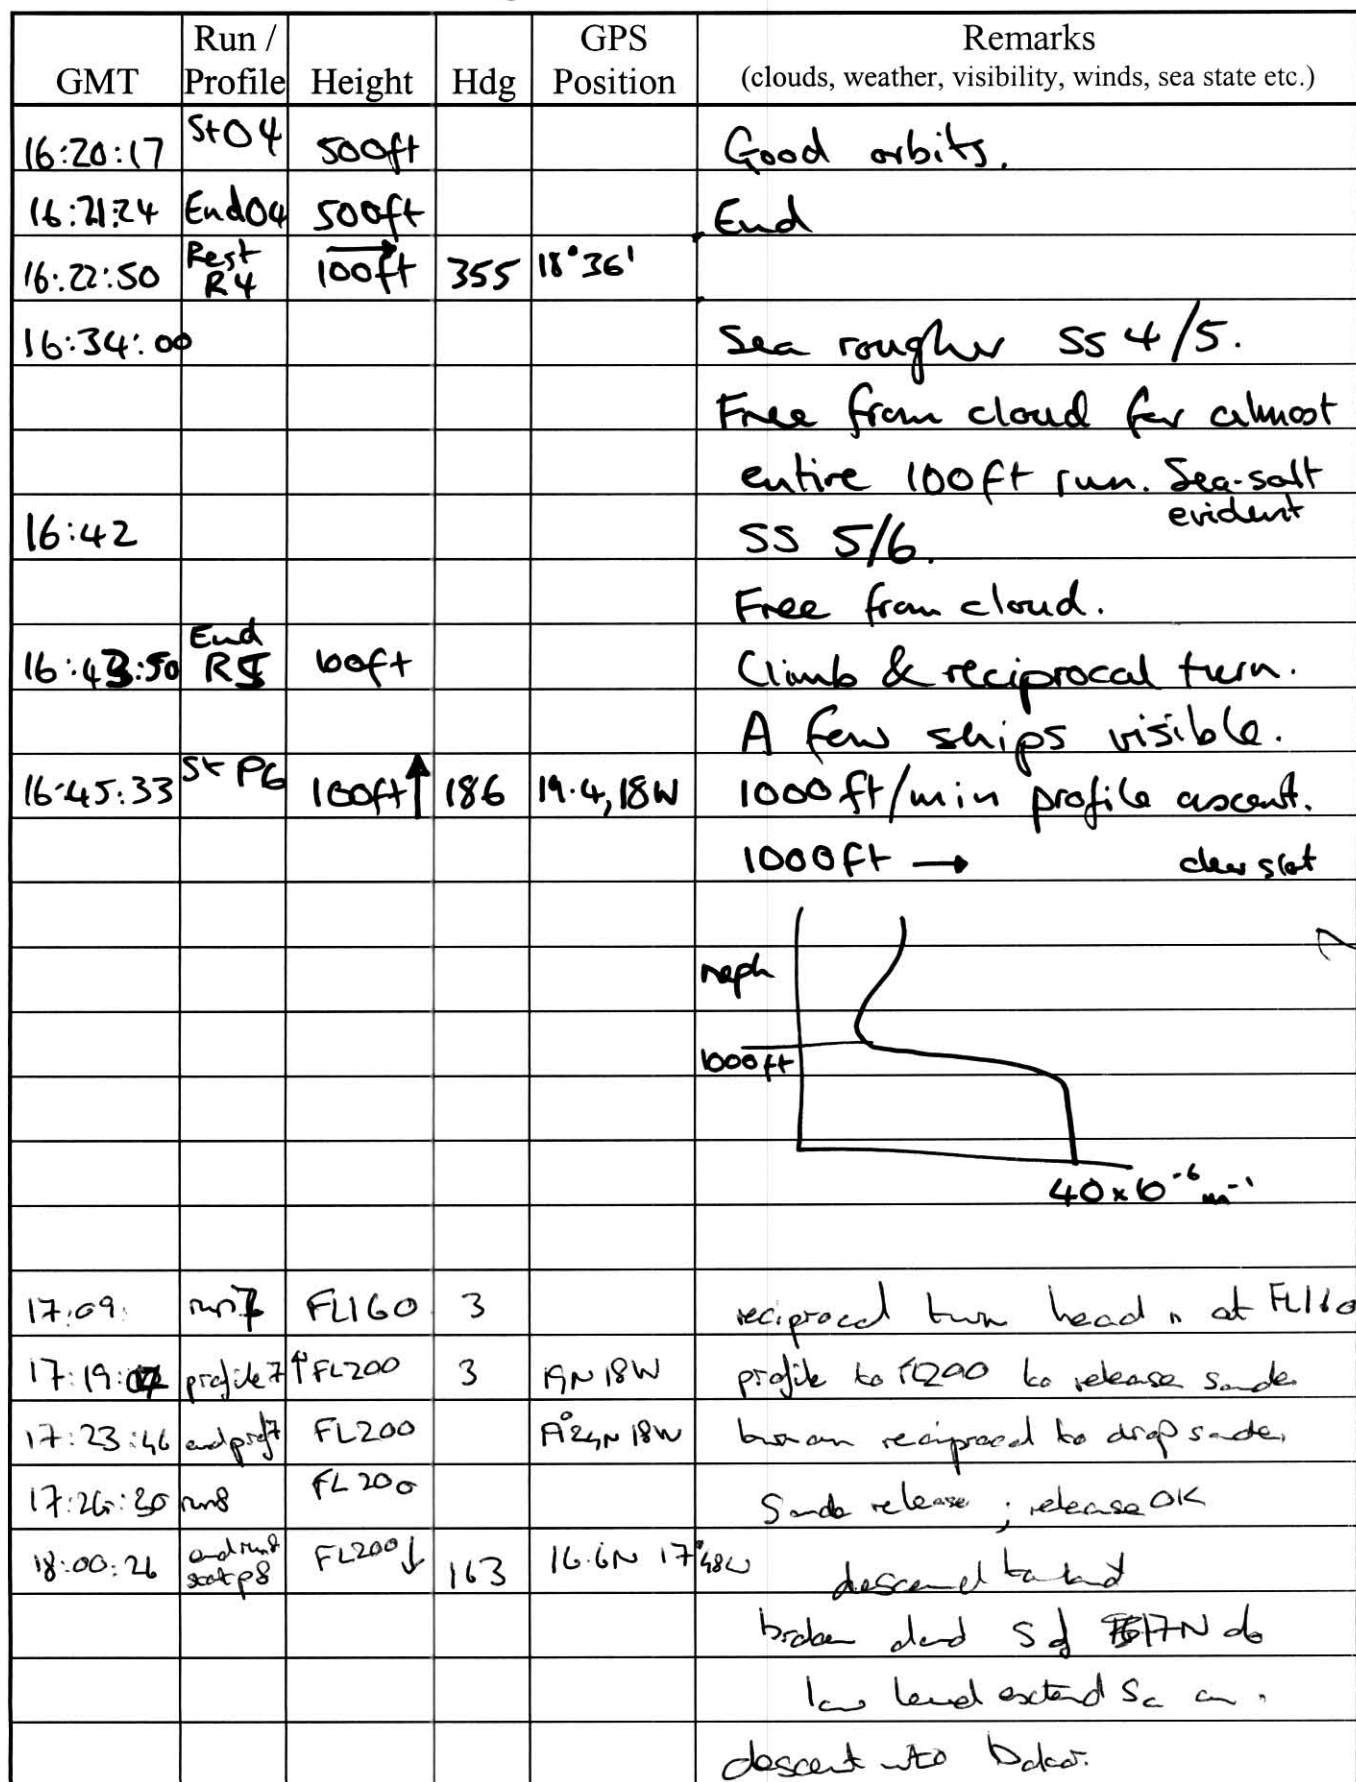 GMT Run / Profile Height Hdg GPS Position Remarks
(clouds, weather, visibility, winds, sea state etc.)
16:20:17 St O4 500ft Good orbits.
16:21:24 End O4 500ft End
16:22:50 Rest R4 100ft 355 18°36'
16:34:00 Sea rougher SS 4/5.
Free from cloud for almost
entire 100ft run. Sea-salt
evident
16:42 SS 5/6.
Free from cloud.
16:43:50 End R5 100ft Climb & reciprocal turn.
A few ships visible.
16:45:33 St P6 100ft ↑ 186 19.4, 18W 1000ft/min profile ascent.
1000ft → clear slot
neph
1000ft
40 x 10⁻⁶ m⁻¹
17:09: run 7 FL160 3 reciprocal turn head n at FL160
17:19:07 profile 7 ↑FL200 3 19N 18W profile to FL200 to release sonde
17:23:46 end prof 7 FL200 18W reciprocal to drop sonde.
17:26:30 run8 FL200 Sonde release ; release OK
18:00:26 end run8 start p8 FL200↓ 163 16.6N 17°48W descend to land
broken cloud S of 17N
low level Sc
descent into Dakar.